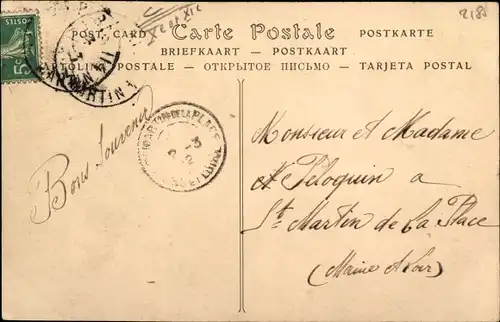 2185
POST CARD
Carte Postale
POSTKARTE
BRIEFKAART — POSTKAART
CARTOLINA POSTALE — ОТКРЫТОЕ ПИСЬМО — TARJETA POSTAL
POSTES
5c
Bons Souvenirs
DE LA PLACE
Monsieur et Madame
Peloquin a
St Martin de la Place
(Maine et Loir)